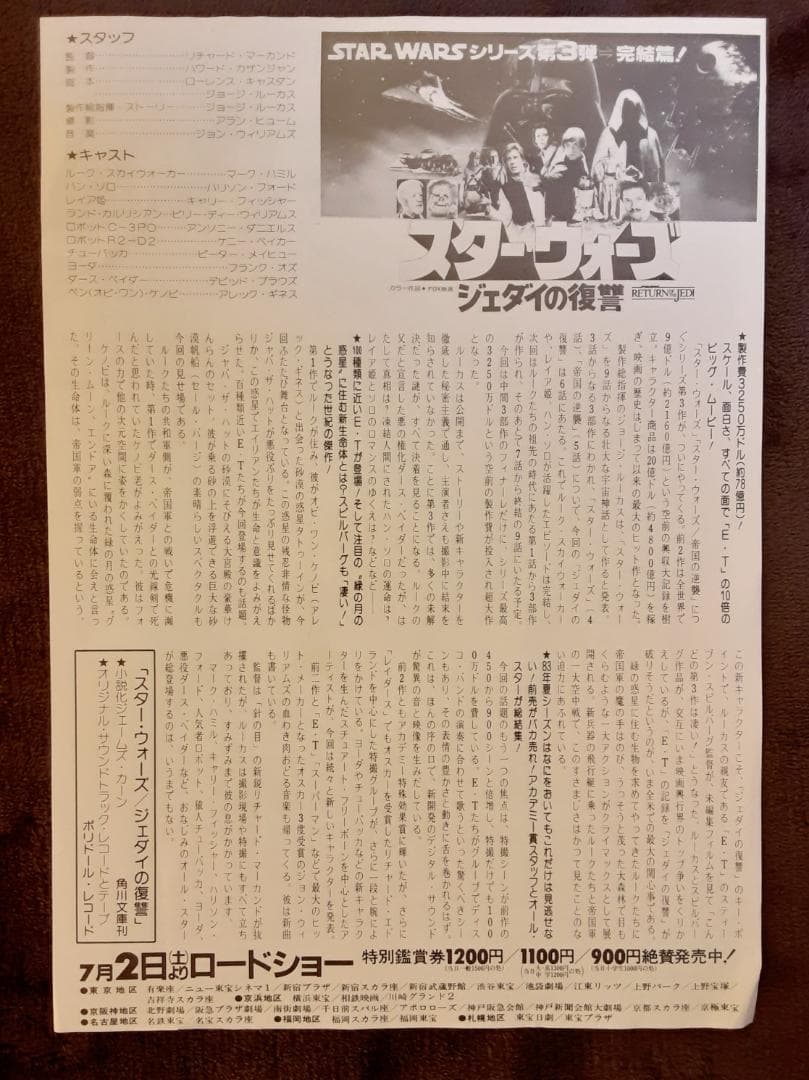 ★スタッフ
監督……………リチャード・マーカンド
製作……………ハワード・カザンジャン
脚本……………ローレンス・キャスダン
ジョージ・ルーカス
製作総指揮・ストーリー……ジョージ・ルーカス
撮影……………アラン・ヒューム
音楽……………ジョン・ウィリアムズ
★キャスト
ルーク・スカイウォーカー………マーク・ハミル
ハン・ソロ……………ハリソン・フォード
レイア姫……………キャリー・フィッシャー
ランド・カルリシアン・ビリー・ディー・ウィリアムス
ロボットC-3PO……アンソニー・ダニエルス
ロボットR2-D2………ケニー・ベイカー
チューバッカ……………ピーター・メイヒュー
ヨーダ……………フランク・オズ
ダース・ベイダー………デビッド・プラウズ
ベン(オビ・ワン)・ケノービ……アレック・ギネス
STAR WARSシリーズ第3弾⇒完結篇!
スター・ウォーズ
カラー作品★FOX映画
ジェダイの復讐
RETURN OF THE JEDI
★製作費3250万ドル(約78億円)!
スケール、面白さ、すべての面で"E・T"の10倍の
ビッグ・ムービー!
「スター・ウォーズ」「スター・ウォーズ/帝国の逆襲」につ
づくシリーズ第3作が、ついにやってくる。前2作は全世界で
9億ドル(約2160億円)という空前の興収大記録を樹
立。キャラクター商品は20億ドル(約4800億円)を稼
ぎ、映画の歴史はじまって以来の最大のヒット作となった。
製作総指揮のジョージ・ルーカスは、"スター・ウォー
ズ"を9話からなる壮大な宇宙神話として作ると発表。
3話からなる3部作にわかれ、「スター・ウォーズ」(4
話)、「帝国の逆襲」(5話)について、今回の「ジェダイの
復讐」は6話にあたる。これでルーク・スカイウォーカー
や、レイア姫、ハン・ソロが活躍したエピソードは完結し、
次回はルークたちの祖先の時代にあたる第1話から3部作
が作られ、そのあとで7話から終結の9話にいたる予定。
今回は中間3部作のフィナーレだけに、シリーズ最高
の3250万ドルという空前の製作費が投入され超大作
となった。
ルーカスは公開まで、ストーリーや新キャラクターを
徹底した秘密主義で通し、主演者さえも撮影中に結末を
知らされていなかった。ことに第3作では、多くの未解
決だった謎が、すべて決着を見ることになる。ルークの
父だと宣言した悪の権化ダース・ベイダーだったが、は
たして真相は?凍結人間にされたハン・ソロの運命は、
レイア姫とソロのロマンスのゆくえは?などなど――
★100種類に近いE・Tが登場!そして注目の"緑の月の
惑星"に住む新生命体とは?スピルバーグも「凄い!」
とうなった世紀の傑作!
第1作でルークが住み、彼がオビ・ワン・ケノビ(アレ
ック・ギネス)と出会った砂漠の惑星タトゥーインが、今
回ふたたび舞台となっている。この惑星の残忍非情な怪物
ジャバ・ザ・ハットが悪役ぶりをたっぷり見せてくれるばか
りか、この惑星でエイリアンたちが生命と意識をよみがえ
らせた。百種類近いE・Tたちが今回登場するのも話題。
ジャバ・ザ・ハットの砂漠にそびえる大宮殿の豪華け
んらんのセット、彼が乗る砂の上を浮遊できる巨大な砂
漠帆船(セール・バージ)の素晴らしいスペクタクルも
今回の見せ場である。
ルークたちの共和軍側が、帝国軍との戦いで危機に瀕
していた時、第1作でダース・ベイダーとの光線剣で死
んだと思われていたケノビ老がよみがえった。彼はフォ
ースの力で他の次元空間に姿をかくしていたのである。
ケノビは、ルークに深い森に覆われた緑の月の惑星"グ
リーン・ムーン・エンドア"にいる生命体に会えと言っ
た。その生命体は、帝国軍の弱点を握っているという。
この新キャラクターこそ、「ジェダイの復讐」のキー・ポ
イントで、ルーカスの親友である「E・T」のスティー
ブン・スピルバーグ監督が、未編集フィルムを見て「こん
どの第3作は凄い!」とうなった。ルーカスとスピルバー
グ作品が、交互にいま映画興行界のトップ争いをくりか
えしているが、「E・T」の記録を「ジェダイの復讐」が
破りそうだというのが、いま全米での最大の関心事である。
緑の惑星に住む生物を求めてやってきたルークたちに
帝国軍の魔の手はのび、うっそうと茂った大森林で目も
くらむような一大アクションがクライマックスとして展
開される。新兵器の飛行艇に乗ったルークたちと帝国軍
の一大空中戦で、このすさまじさはかつて見たことのな
い迫力にあふれている。
★83年夏シーズンはなにをおいてもこれだけは見逃せな
い!前売がバカ売れ!アカデミー賞スタッフとオール・
スターが総結集!
今回の話題のもう一つの焦点は、特撮シーンが前作の
450から900シーンと倍増し、特撮だけでも100
0万ドルを費している。E・Tたちがグループでディス
コ・バンドの演奏に合わせて歌うといった驚くべきシー
ンもあり、その表情の豊かさと動きに舌を巻かれるはず。
これは、ほんの序の口で、新開発のデジタル・サウンド
が驚異の音と映像を生みだしている。
前2作ともアカデミー特殊効果賞に輝いたが、さらに
「レイダース」でもオスカーを受賞したリチャード・エド
ランドを中心にした特撮グループが、さらに一段と腕によ
りをかけている。ヨーダやチューバッカなどの新キャラク
ターを生んだスチュアート・フリーボーンを中心としたア
ーティストが、今回は続々と新しいキャラクターを発表。
前二作と「E・T」「スーパーマン」などで最大のヒッ
ト・メーカーとなったオスカー3度受賞のジョン・ウィ
リアムズの血わき肉おどる音楽も帰ってくる。彼は新曲
も書いている。
監督は「針の目」の新鋭リチャード・マーカンドが抜
擢されたが、ルーカスは撮影現場や特撮にもすべて立ち
あっており、すみずみまで彼の息がかかっています。
マーク・ハミル、キャリー・フィッシャー、ハリソン・
フォード、人気者ロボット、猿人チューバッカ、ヨーダ、
悪役ダース・ベイダーなど、おなじみのオール・スター
が総登場するのは、いうまでもない。
「スター・ウォーズ/ジェダイの復讐」
★小説化ジェームズ・カーン 角川文庫刊
★オリジナル・サウンドトラック・レコードとテープ
ポリドール・レコード
7月2日(土)よりロードショー 特別鑑賞券1200円/1100円/900円絶賛発売中!
(当日一般1500円の処) (当日大・高1300円 中学1200円の処) (当日小学生1000円の処)
●東京地区 有楽座/ニュー東宝シネマ1/新宿プラザ/新宿スカラ座/新宿武蔵野館/渋谷宝塚/池袋劇場/江東リッツ/上野パーク/上野宝塚/
吉祥寺スカラ座 ●京浜地区 横浜東宝/相鉄映画/川崎グランド2
●京阪神地区 北野劇場/阪急プラザ劇場/南街劇場/千日前スバル座/アポロローズ/神戸阪急会館/神戸新聞会館大劇場/京都スカラ座/京極東宝
●名古屋地区 名鉄東宝/名宝スカラ座 ●福岡地区 福岡スカラ座/福岡東宝 ●札幌地区 東宝日劇/東宝プラザ